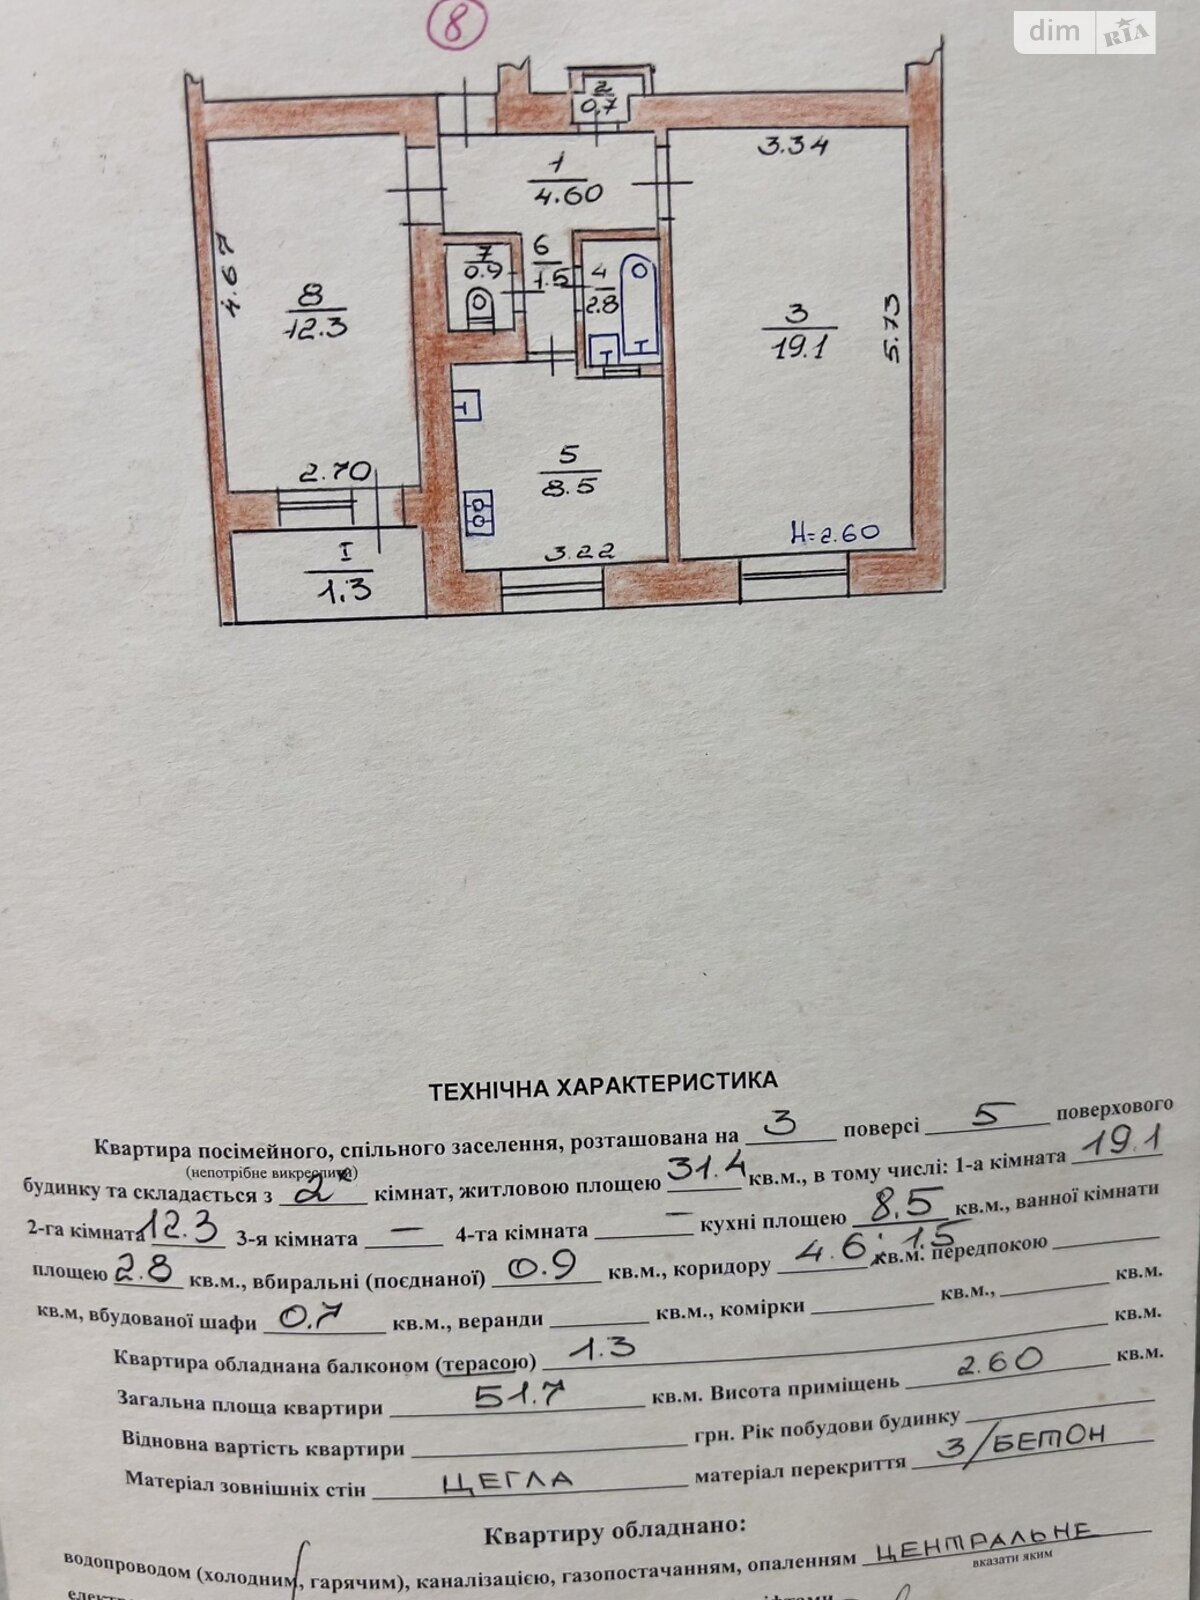 8
dim RIA
2
0.7
3.34
1
4.60
4.67
7
0.9
6
1.5
4
2.8
8
12.3
3
19.1
5.73
5
8.5
2.70
H=2.60
3.22
I
1.3
ТЕХНІЧНА ХАРАКТЕРИСТИКА
Квартира посімейного, спільного заселення, розташована на 3 поверсі 5 поверхового
(непотрібне викреслити)
будинку та складається з 2х кімнат, житловою площею 31.4 кв.м., в тому числі: 1-а кімната 19.1
2-га кімната 12.3 3-я кімната — 4-та кімната — кухні площею 8,5 кв.м., ванної кімнати
площею 2.8 кв.м., вбиральні (поєднаної) 0.9 кв.м., коридору 4.6; 1.5 кв.м. передпокою
кв.м, вбудованої шафи 0.7 кв.м., веранди кв.м., комірки кв.м., кв.м.
Квартира обладнана балконом (терасою) 1.3 кв.м.
Загальна площа квартири 51.7 кв.м. Висота приміщень 2.60 кв.м.
Відновна вартість квартири грн. Рік побудови будинку
Матеріал зовнішніх стін ЦЕГЛА матеріал перекриття З/БЕТОН
Квартиру обладнано:
водопроводом (холодним, гарячим), каналізацією, газопостачанням, опаленням ЦЕНТРАЛЬНЕ
вказати яким